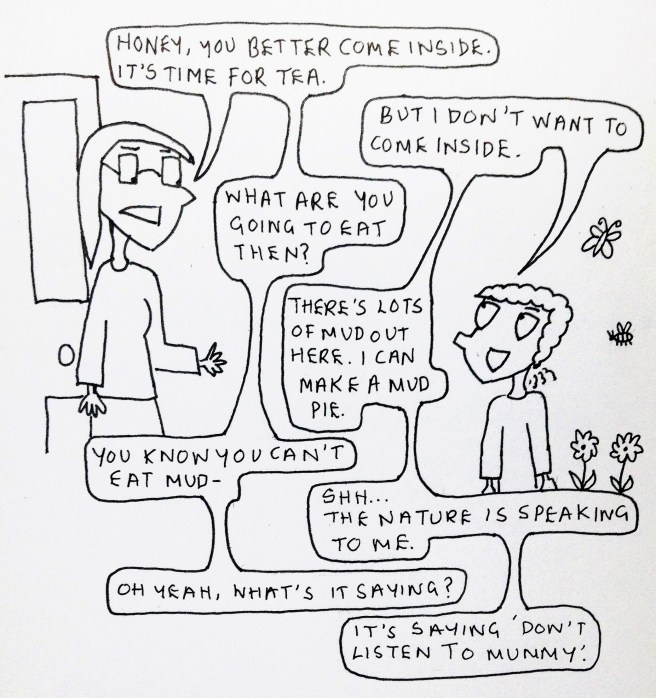 HONEY, YOU BETTER COME INSIDE.
IT'S TIME FOR TEA.
BUT I DON'T WANT TO
COME INSIDE.
WHAT ARE YOU
GOING TO EAT
THEN?
THERE'S LOTS
OF MUD OUT
HERE. I CAN
MAKE A MUD
PIE.
YOU KNOW YOU CAN'T
EAT MUD-
SHH...
THE NATURE IS SPEAKING
TO ME.
OH YEAH, WHAT'S IT SAYING?
IT'S SAYING 'DON'T
LISTEN TO MUMMY'.